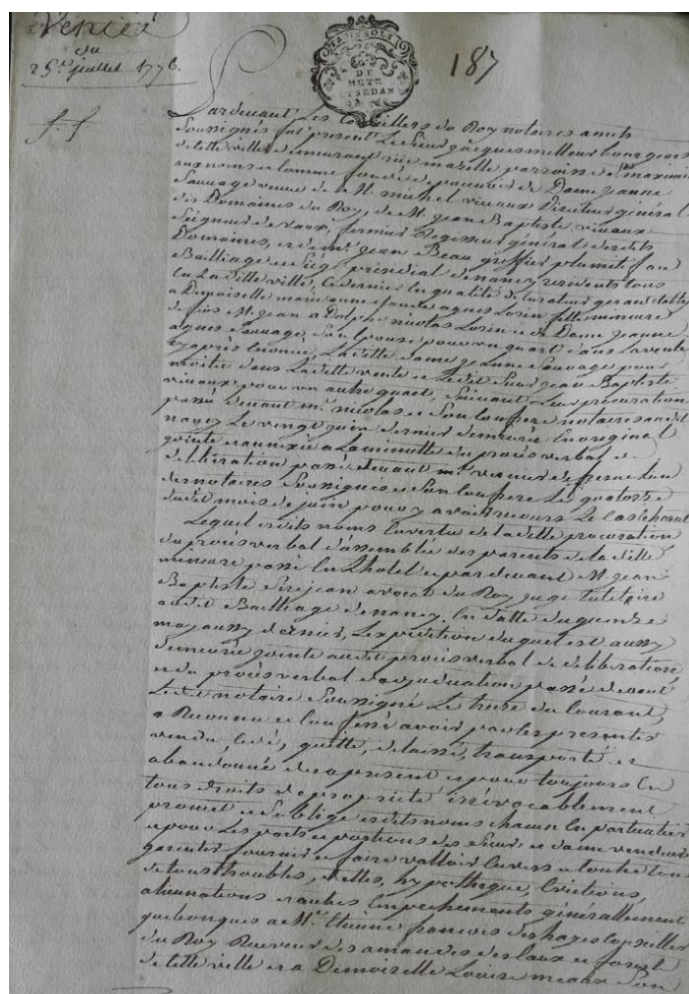 Vente
du
25e juillet 1776.
187
DE
METZ
SEDAN
Pardevant Les Conseillers du Roy notaires a metz
Soussignés fut present Le Sieur jacques meilleur bourgeois
de cette ville y demeurant rüe mazelle parroisse St maximin
aux noms et comme fondé de pouvoir de Dame jeanne
Sauvage veuve de M. michel vivaux Directeur général
des Domaines du Roy, de M. jean Baptiste vivaux
Seigneur de vaux, fermier Regisseur général desdits
Domaines, et de me. jean Beau greffier plumitif au
Bailliage et Siége présidial de nancy residents tous
En La ditte ville, Ce dernier En qualité de Curateur
a Demoiselle marie anne agnes Lorin fille mineure
de feu M. jean a Dolphe nicolas Lorin et de Dame jeanne
agnes Sauvage, Son Epouse pour un quart dans La vente
cy après Enoncée, La ditte Dame jeanne Sauvage pour
moitié dans La ditte vente et Le dit Sieur jean Baptiste
vivaux pour un autre quart, Suivant Leur procuration
passé devant me. nicolas et Son Confrere notaires audit
nancy Le vingt juin dernier demeurée En original
jointe et annexée a La minutte du procès verbal de
délibération passé devant me. vernier dufresne L'un
des notaires Soussignés et Son Confrere Le quatorze
dudit mois de juin pour y avoir recours Le Cas Echeant
Lequel esdits noms En vertu de la ditte procuration
du procès verbal d'assemblée des parents de la ditte
mineure passé En L'hotel et par devant M. jean
Baptiste avocat du Roy juge tutelaire
audit Bailliage de nancy, En datte du quinze
may aussy dernier, L'expédition duquel est aussy
demeurée jointe audit procès verbal de délibération,
et du procès verbal d'adjudication passé devant
Ledit notaire Soussigné Le treize du Courant,
a Reconnu et Confessé avoir par les presentes
vendu, Cedé, quitté, delaissé, transporté et
abandonné des a present et pour toujours En
tous droits de propriété irrévocablement
promet et S'oblige esdits noms chacun En particulier
et pour Les parts et portions des Sieurs et dame vendeurs
garentir fournir et faire valloir Envers et contre tous
de tous troubles, dettes, hypotheque, Evictions,
alienations et autres Empechements générallement
quelconques a M. Etienne françois deshayes Conseiller
du Roy Receveur des amandes des Eaux et forets
de cette ville et a Demoiselle Louise meaux Son